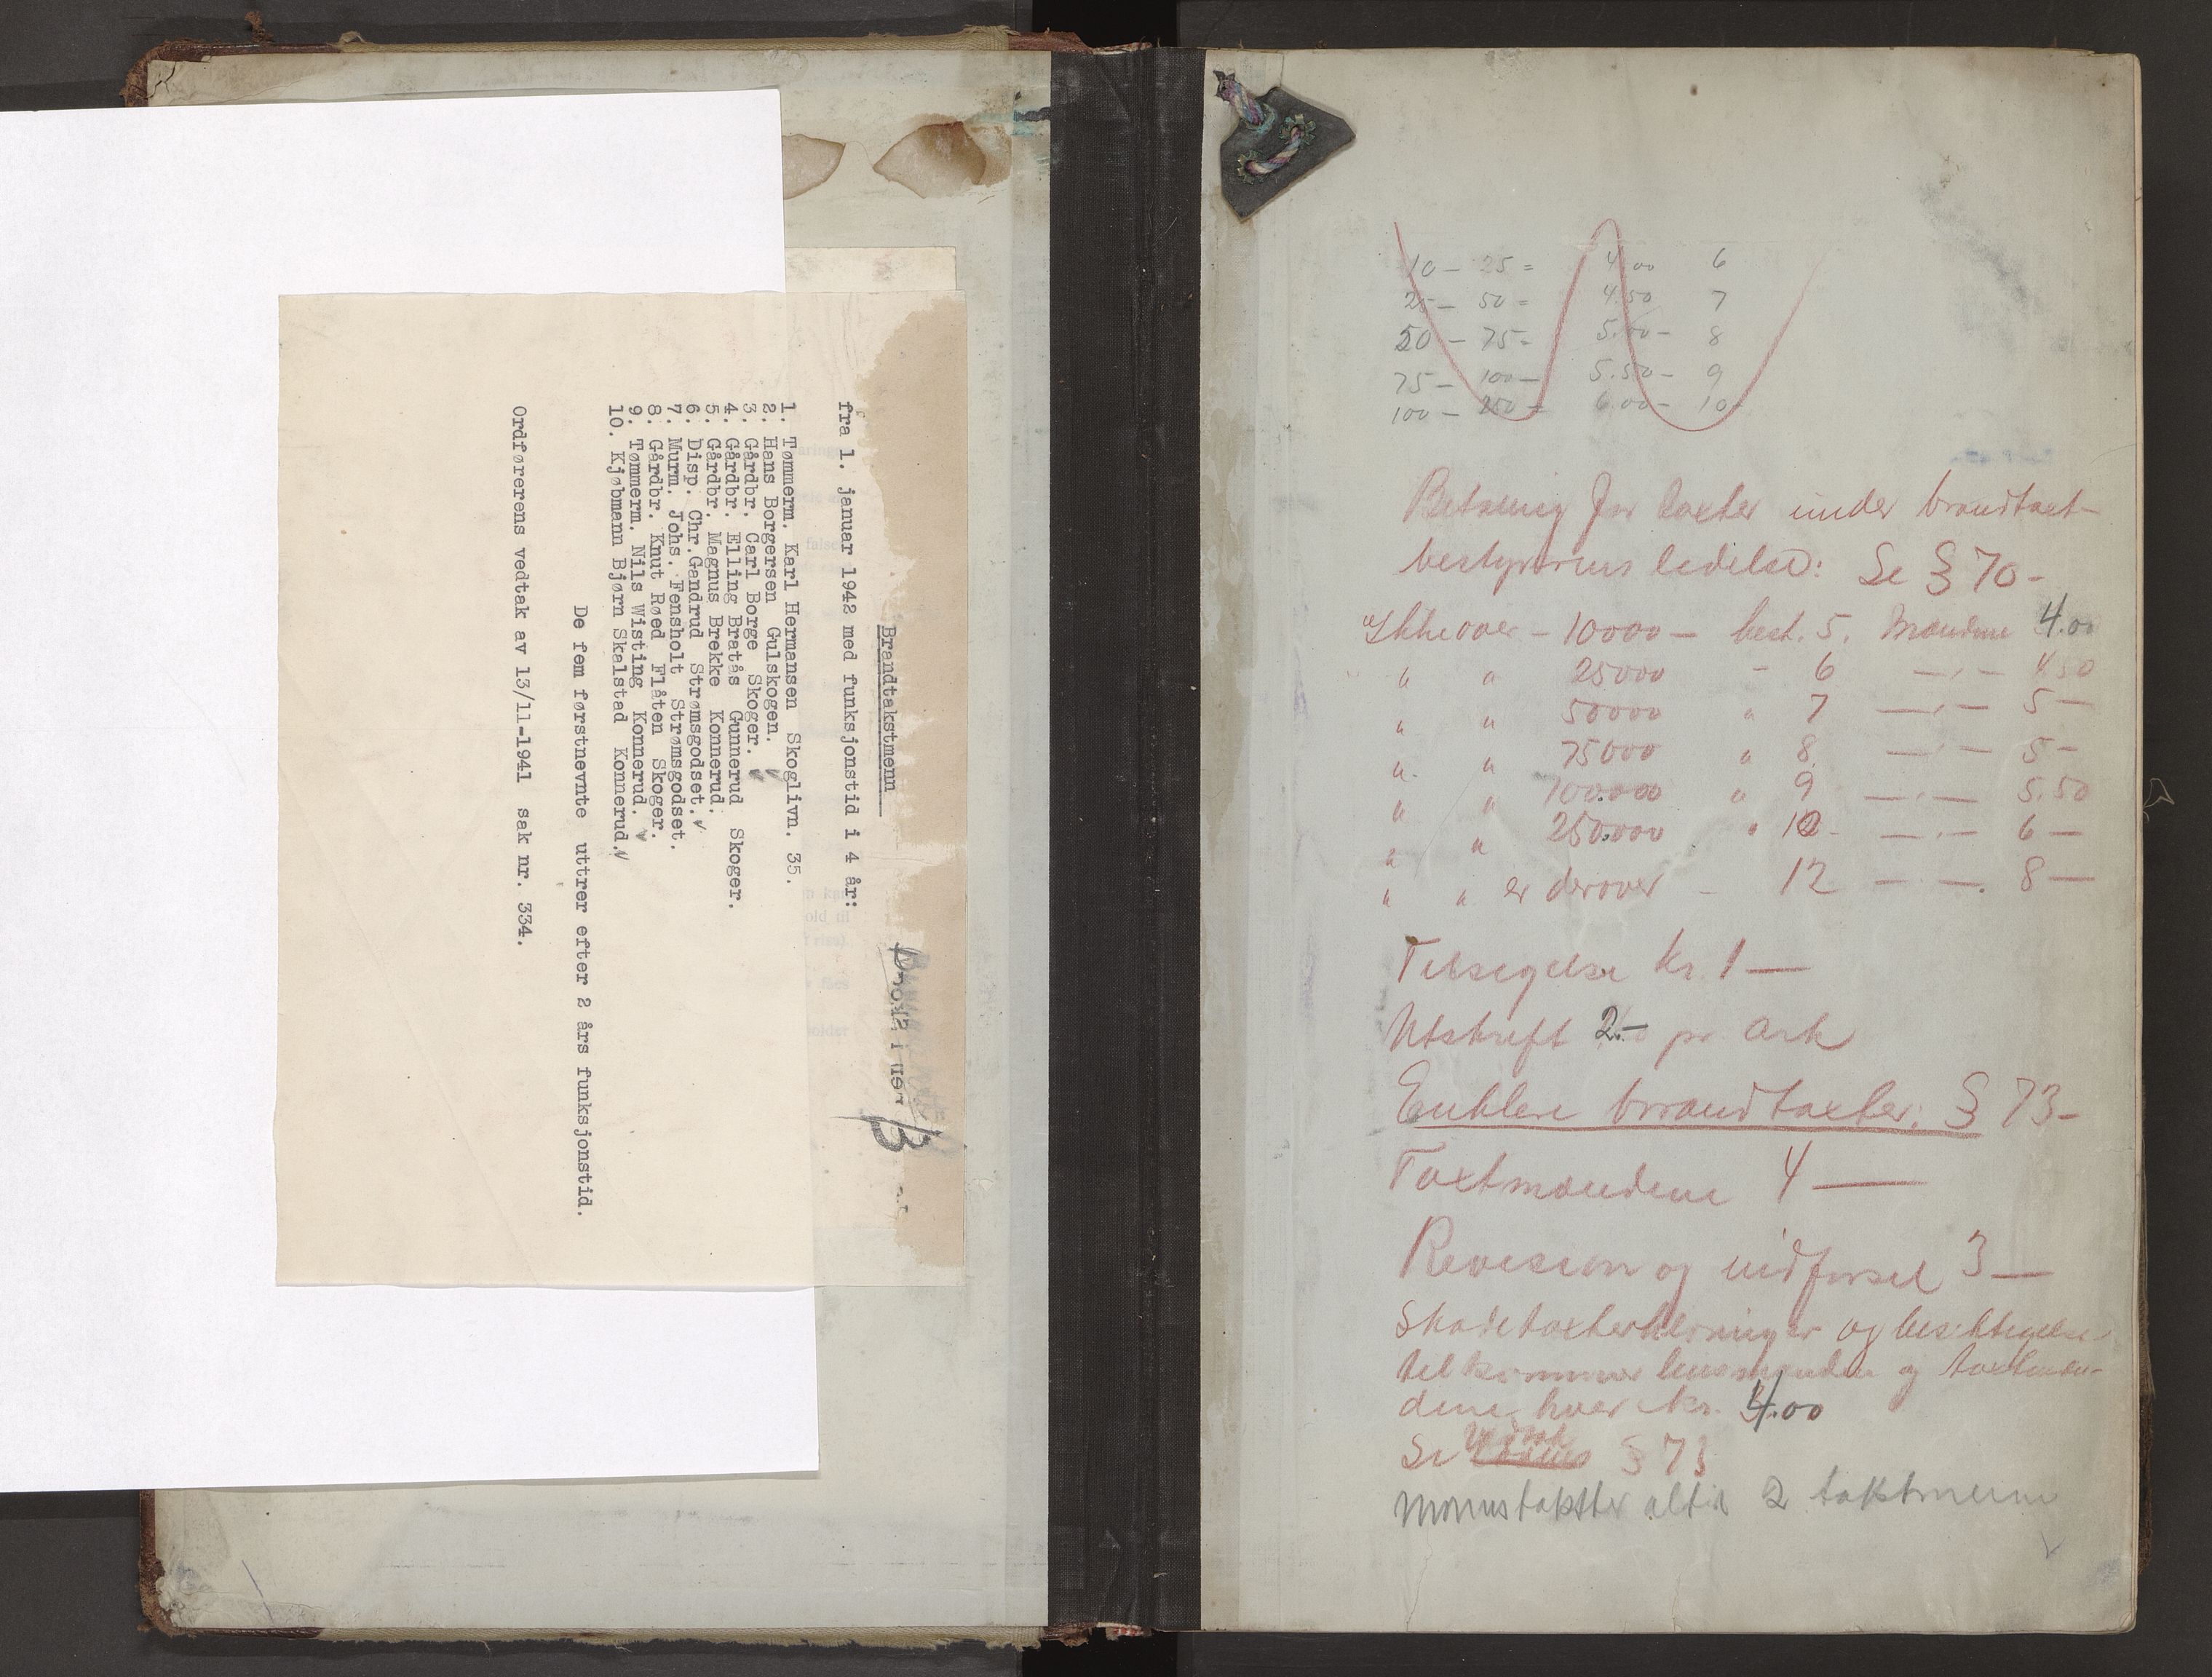 Brandtakstmenn
fra 1. januar 1942 med funksjonstid i 4 år:
1. Tømmerm. Karl Hermansen Skoglivn. 35.
2. Hans Borgersen Gulskogen.
3. Gårdbr. Carl Borge Skoger.
4. Gårdbr. Elling Bratås Gunnerud Skoger.
5. Gårdbr. Magnus Brekke Konnerud.
6. Disp. Chr. Gandrud Strømsgodset.
7. Murm. Johs. Fensholt Strømsgodset.
8. Gårdbr. Knut Røed Flåten Skoger.
9. Tømmerm. Nils Wisting Konnerud.
10. Kjøbmann Bjørn Skalstad Konnerud.
De fem førstnevnte uttrer efter 2 års funksjonstid.
Ordførerens vedtak av 13/11-1941 sak nr. 334.
10 – 25 = 4.00 6
25 – 50 = 4.50 7
50 – 75 = 5.00 – 8
75 – 100 – 5.50 – 9
100 – 250 = 6.00 – 10 –
Betaling for taxter under brandtaxt-
bestyrerens ledelse: Se § 70 –
Ikke over – 10000 – best. 5. Mændene 4.00
" " 25000 – 6 — " — 4.50
" " 50000 " 7 — " — 5 —
" " 75000 " 8. — " — 5 –
" " 100.000 " 9 — " — 5.50
" " 250.000 " 10 – — " — 6 —
" " er derover – 12 — — . 8 —
Tilsigelse kr. 1 —
Utskrift 2.– pr. Ark
Enklere brandtaxter: § 73 –
Taxtmændene 4 —
Revision og indførsel 3 —
Skadetaxterklæringer og besiktigelse
tilkommer lensmanden og taxtmæn-
dene hver kr. 4.00
Se § 73
takster altid 2 takstmenn